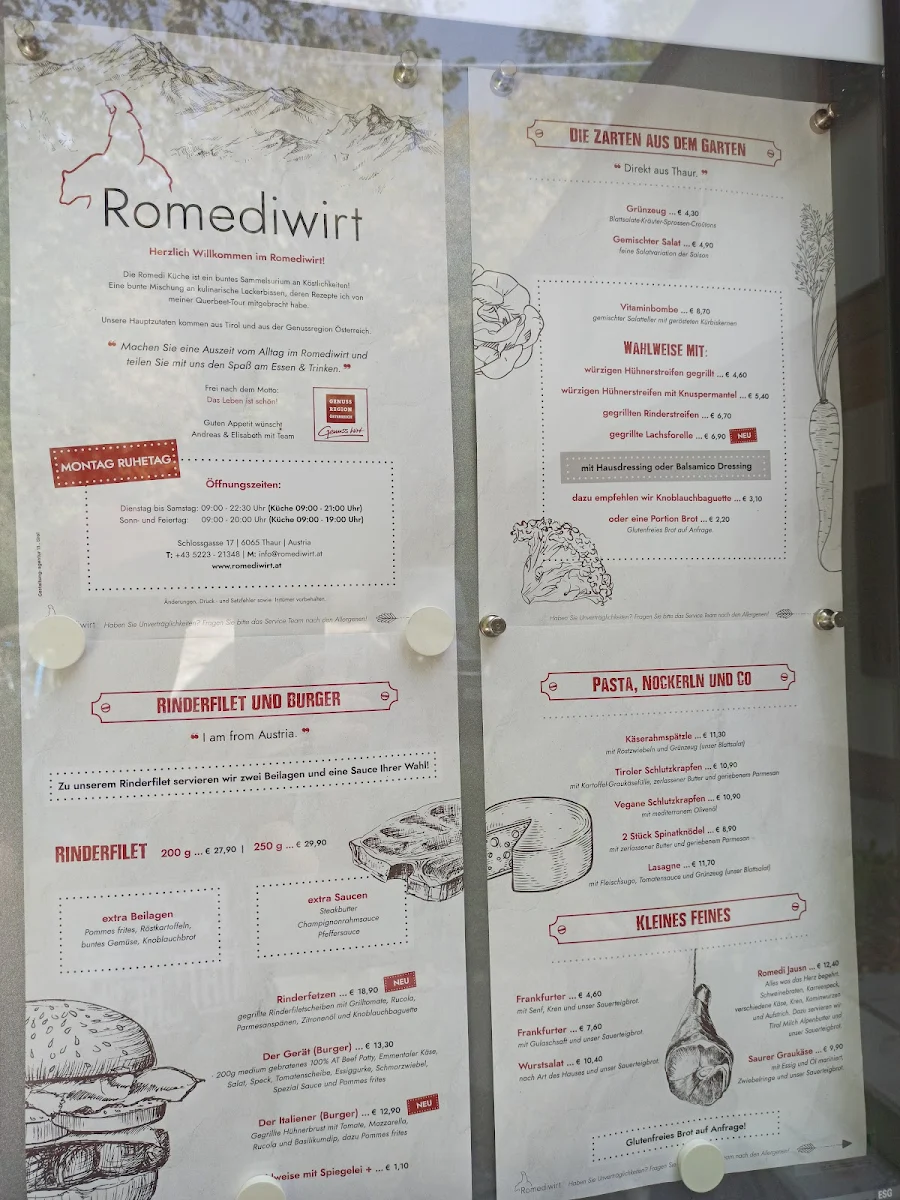 Romediwirt
Herzlich Willkommen im Romediwirt!
Die Romedi Küche ist ein buntes Sammelsurium an Köstlichkeiten!
Eine bunte Mischung an kulinarische Leckerbissen, deren Rezepte ich von
meiner Querbeet-Tour mitgebracht habe.
Unsere Hauptzutaten kommen aus Tirol und aus der Genussregion Österreich.
❝ Machen Sie eine Auszeit vom Alltag im Romediwirt und
teilen Sie mit uns den Spaß am Essen & Trinken. ❞
Frei nach dem Motto:
Das Leben ist schön!
Guten Appetit wünscht
Andreas & Elisabeth mit Team
GENUSS
REGION
ÖSTERREICH
Genuss Wirt
MONTAG RUHETAG
Öffnungszeiten:
Dienstag bis Samstag: 09:00 - 22:30 Uhr (Küche 09:00 - 21:00 Uhr)
Sonn- und Feiertag: 09:00 - 20:00 Uhr (Küche 09:00 - 19:00 Uhr)
Schlossgasse 17 | 6065 Thaur | Austria
T: +43 5223 - 21348 | M: info@romediwirt.at
www.romediwirt.at
Änderungen, Druck- und Satzfehler sowie Irrtümer vorbehalten.
wirt Haben Sie Unverträglichkeiten? Fragen Sie bitte das Service Team nach den Allergenen!
RINDERFILET UND BURGER
❝ I am from Austria. ❞
Zu unserem Rinderfilet servieren wir zwei Beilagen und eine Sauce Ihrer Wahl!
RINDERFILET 200 g ... € 27,90 | 250 g ... € 29,90
extra Beilagen
Pommes frites, Röstkartoffeln,
buntes Gemüse, Knoblauchbrot
extra Saucen
Steakbutter
Champignonrahmsauce
Pfeffersauce
Rinderfetzen ... € 18,90 NEU
gegrillte Rinderfiletscheiben mit Grilltomate, Rucola,
Parmesanspänen, Zitronenöl und Knoblauchbaguette
Der Gerät (Burger) ... € 13,30
200g medium gebratenes 100% AT Beef Patty, Emmentaler Käse,
Salat, Speck, Tomatenscheibe, Essiggurke, Schmorzwiebel,
Spezial Sauce und Pommes frites
Der Italiener (Burger) ... € 12,90 NEU
Gegrillte Hühnerbrust mit Tomate, Mozzarella,
Rucola und Basilikumdip, dazu Pommes frites
weise mit Spiegelei + ... € 1,10
DIE ZARTEN AUS DEM GARTEN
❝ Direkt aus Thaur. ❞
Grünzeug ... € 4,30
Blattsalate-Kräuter-Sprossen-Croûtons
Gemischter Salat ... € 4,90
feine Salatvariation der Saison
Vitaminbombe ... € 8,70
gemischter Salatteller mit gerösteten Kürbiskernen
WAHLWEISE MIT:
würzigen Hühnerstreifen gegrillt ... € 4,60
würzigen Hühnerstreifen mit Knuspermantel ... € 5,40
gegrillten Rinderstreifen ... € 6,70
gegrillte Lachsforelle ... € 6,90 NEU
mit Hausdressing oder Balsamico Dressing
dazu empfehlen wir Knoblauchbaguette ... € 3,10
oder eine Portion Brot ... € 2,20
Glutenfreies Brot auf Anfrage.
Haben Sie Unverträglichkeiten? Fragen Sie bitte das Service Team nach den Allergenen!
PASTA, NOCKERLN UND CO
Käserahmspätzle ... € 11,30
mit Röstzwiebeln und Grünzeug (unser Blattsalat)
Tiroler Schlutzkrapfen ... € 10,90
mit Kartoffel-Graukäsefülle, zerlassener Butter und geriebenem Parmesan
Vegane Schlutzkrapfen ... € 10,90
mit mediterranem Olivenöl
2 Stück Spinatknödel ... € 8,90
mit zerlassener Butter und geriebenem Parmesan
Lasagne ... € 11,70
mit Fleischsugo, Tomatensauce und Grünzeug (unser Blattsalat)
KLEINES FEINES
Frankfurter ... € 4,60
mit Senf, Kren und unser Sauerteigbrot
Frankfurter ... € 7,60
mit Gulaschsaft und unser Sauerteigbrot
Wurstsalat ... € 10,40
nach Art des Hauses und unser Sauerteigbrot
Romedi Jausn ... € 12,40
Alles was das Herz begehrt,
Schweinebraten, Karreespeck,
verschiedene Käse, Kren, Kaminwurzen
und Aufstrich. Dazu servieren wir
Tirol Milch Alpenbutter und
unser Sauerteigbrot.
Saurer Graukäse ... € 9,90
mit Essig und Öl mariniert,
Zwiebelringe und unser Sauerteigbrot
Glutenfreies Brot auf Anfrage!
Romediwirt Haben Sie Unverträglichkeiten? Fragen Sie team nach den Allergenen!
ESG